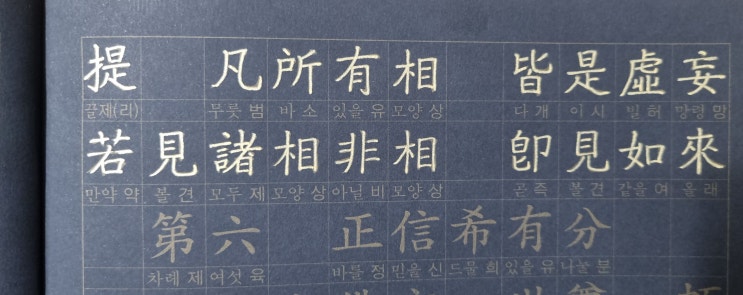 提 凡所有相 皆是虛妄
끌제(리) 무릇 범 바 소 있을 유 모양 상 다 개 이 시 빌 허 망령 망
若見諸相非相 卽見如來
만약 약 볼 견 모두 제 모양 상 아닐 비 모양 상 곧 즉 볼 견 같을 여 올 래
第六 正信希有分
차례 제 여섯 육 바를 정 믿을 신 드물 희 있을 유 나눌 분